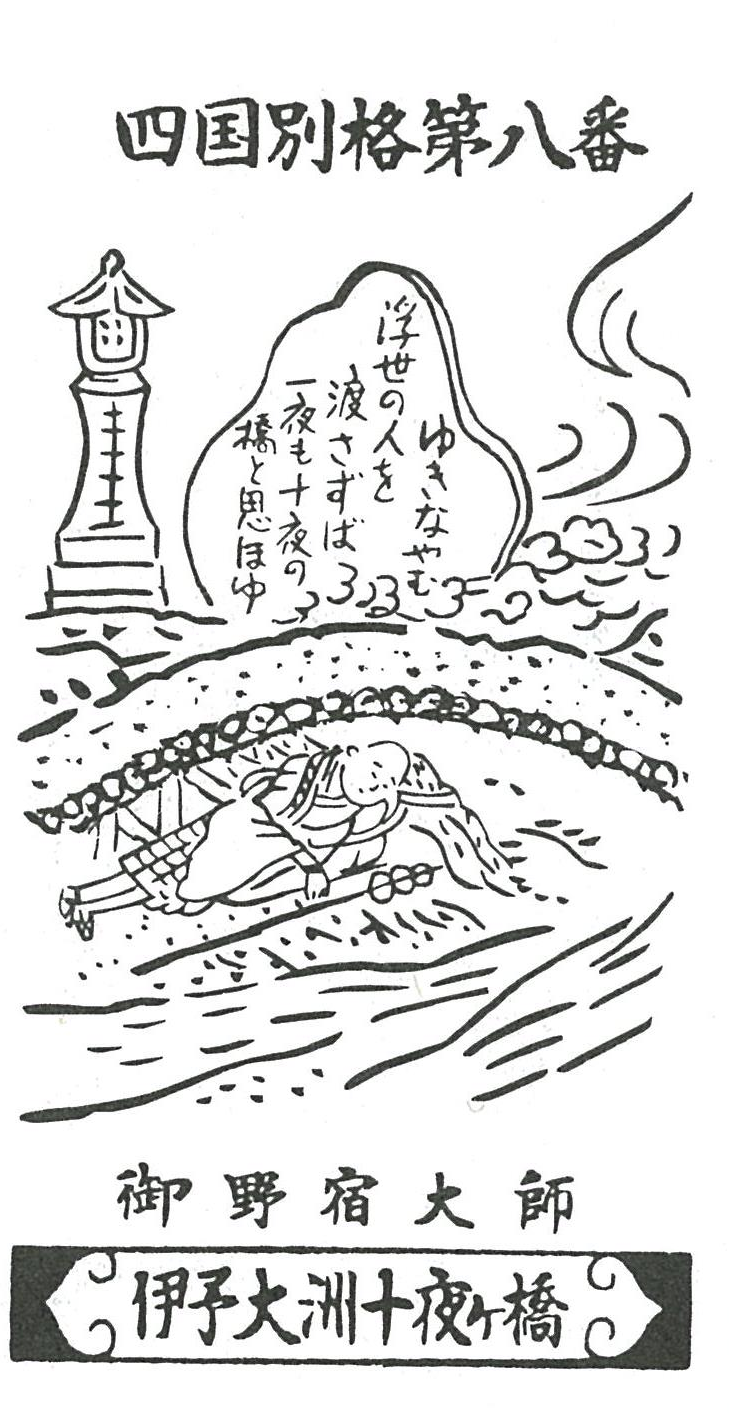 四国別格第八番
ゆきなやむ
浮世の人を
渡さずば
一夜も十夜の
橋と思ほゆ
御野宿大師
伊予大洲十夜ヶ橋